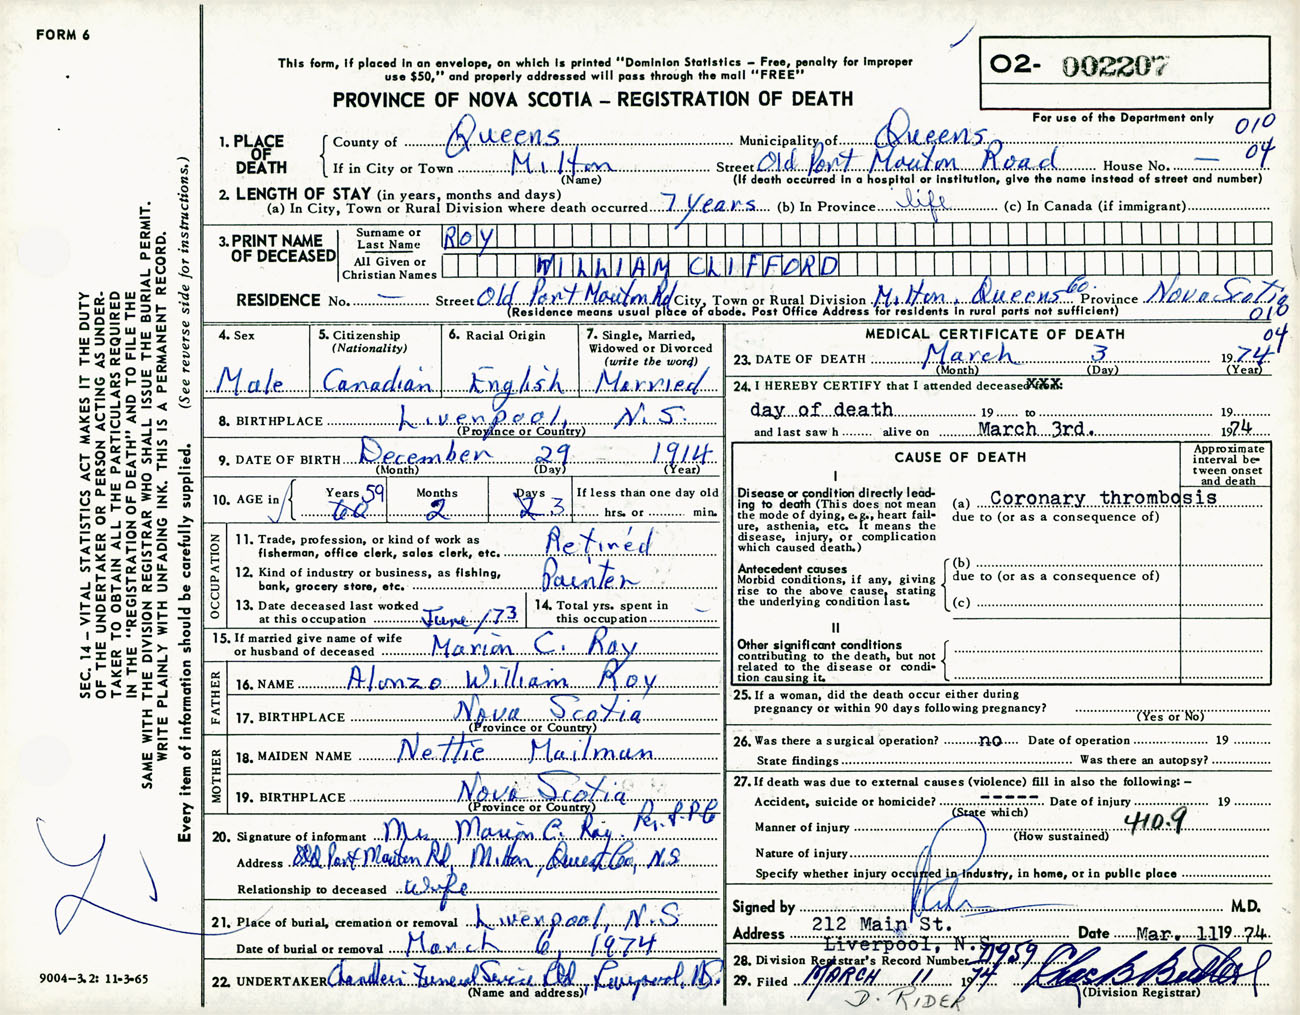 FORM 6
This form, if placed in an envelope, on which is printed "Dominion Statistics – Free, penalty for improper
use $50," and properly addressed will pass through the mail "FREE"
PROVINCE OF NOVA SCOTIA – REGISTRATION OF DEATH
02- 002207
For use of the Department only
010
04
1. PLACE OF DEATH
County of Queens Municipality of Queens
If in City or Town Milton Street Old Port Mouton Road House No. —
(Name) (If death occurred in a hospital or institution, give the name instead of street and number)
2. LENGTH OF STAY (in years, months and days)
(a) In City, Town or Rural Division where death occurred 7 years (b) In Province life (c) In Canada (if immigrant)
3. PRINT NAME OF DECEASED
Surname or Last Name ROY
All Given or Christian Names WILLIAM CLIFFORD
RESIDENCE No. — Street Old Port Mouton Rd City, Town or Rural Division Milton, Queens Co. Province Nova Scotia
(Residence means usual place of abode. Post Office Address for residents in rural parts not sufficient)
010
04
4. Sex
Male
5. Citizenship
(Nationality)
Canadian
6. Racial Origin
English
7. Single, Married,
Widowed or Divorced
(write the word)
Married
8. BIRTHPLACE Liverpool, N.S.
(Province or Country)
9. DATE OF BIRTH December 29 1914
(Month) (Day) (Year)
10. AGE in Years 59 Months 2 Days 3 If less than one day old
hrs. or min.
OCCUPATION
11. Trade, profession, or kind of work as
fisherman, office clerk, sales clerk, etc. Retired
12. Kind of industry or business, as fishing,
bank, grocery store, etc. Painter
13. Date deceased last worked
at this occupation June /73
14. Total yrs. spent in
this occupation –
15. If married give name of wife
or husband of deceased Marion C. Roy
FATHER
16. NAME Alonzo William Roy
17. BIRTHPLACE Nova Scotia
(Province or Country)
MOTHER
18. MAIDEN NAME Nettie Mailman
19. BIRTHPLACE Nova Scotia
(Province or Country)
20. Signature of informant Mrs Marion C. Roy
Address Old Port Mouton Rd, Milton, Queens Co, N.S
Relationship to deceased Wife
21. Place of burial, cremation or removal Liverpool, N.S
Date of burial or removal March 6 1974
22. UNDERTAKER Chandlers Funeral Service Ltd, Liverpool, N.S.
(Name and address)
MEDICAL CERTIFICATE OF DEATH
23. DATE OF DEATH March 3 1974
(Month) (Day) (Year)
24. I HEREBY CERTIFY that I attended deceased XXX:
day of death 19 to 19
and last saw h alive on March 3rd. 1974
CAUSE OF DEATH
Approximate
interval be-
tween onset
and death
I
Disease or condition directly lead-
ing to death (This does not mean
the mode of dying, e.g., heart fail-
ure, asthenia, etc. It means the
disease, injury, or complication
which caused death.)
(a) Coronary thrombosis
due to (or as a consequence of)
Antecedent causes
Morbid conditions, if any, giving
rise to the above cause, stating
the underlying condition last.
(b)
due to (or as a consequence of)
(c)
II
Other significant conditions
contributing to the death, but not
related to the disease or condi-
tion causing it.
25. If a woman, did the death occur either during
pregnancy or within 90 days following pregnancy?
(Yes or No)
26. Was there a surgical operation? no Date of operation 19
State findings Was there an autopsy?
27. If death was due to external causes (violence) fill in also the following: –
Accident, suicide or homicide? ----- Date of injury 19
(State which)
Manner of injury 410.9
(How sustained)
Nature of injury
Specify whether injury occurred in industry, in home, or in public place
Signed by M.D.
Address 212 Main St. Date Mar. 11 19 74
Liverpool, N.S.
28. Division Registrar's Record Number 71959
29. Filed MARCH 11 1974
(Division Registrar)
D. RIDER
SEC. 14 – VITAL STATISTICS ACT MAKES IT THE DUTY
OF THE UNDERTAKER OR PERSON ACTING AS UNDER-
TAKER TO OBTAIN ALL THE PARTICULARS REQUIRED
IN THE "REGISTRATION OF DEATH" AND TO FILE THE
SAME WITH THE DIVISION REGISTRAR WHO SHALL ISSUE THE BURIAL PERMIT.
WRITE PLAINLY WITH UNFADING INK. THIS IS A PERMANENT RECORD.
Every item of information should be carefully supplied. (See reverse side for instructions.)
9004-3.2: 11-3-65